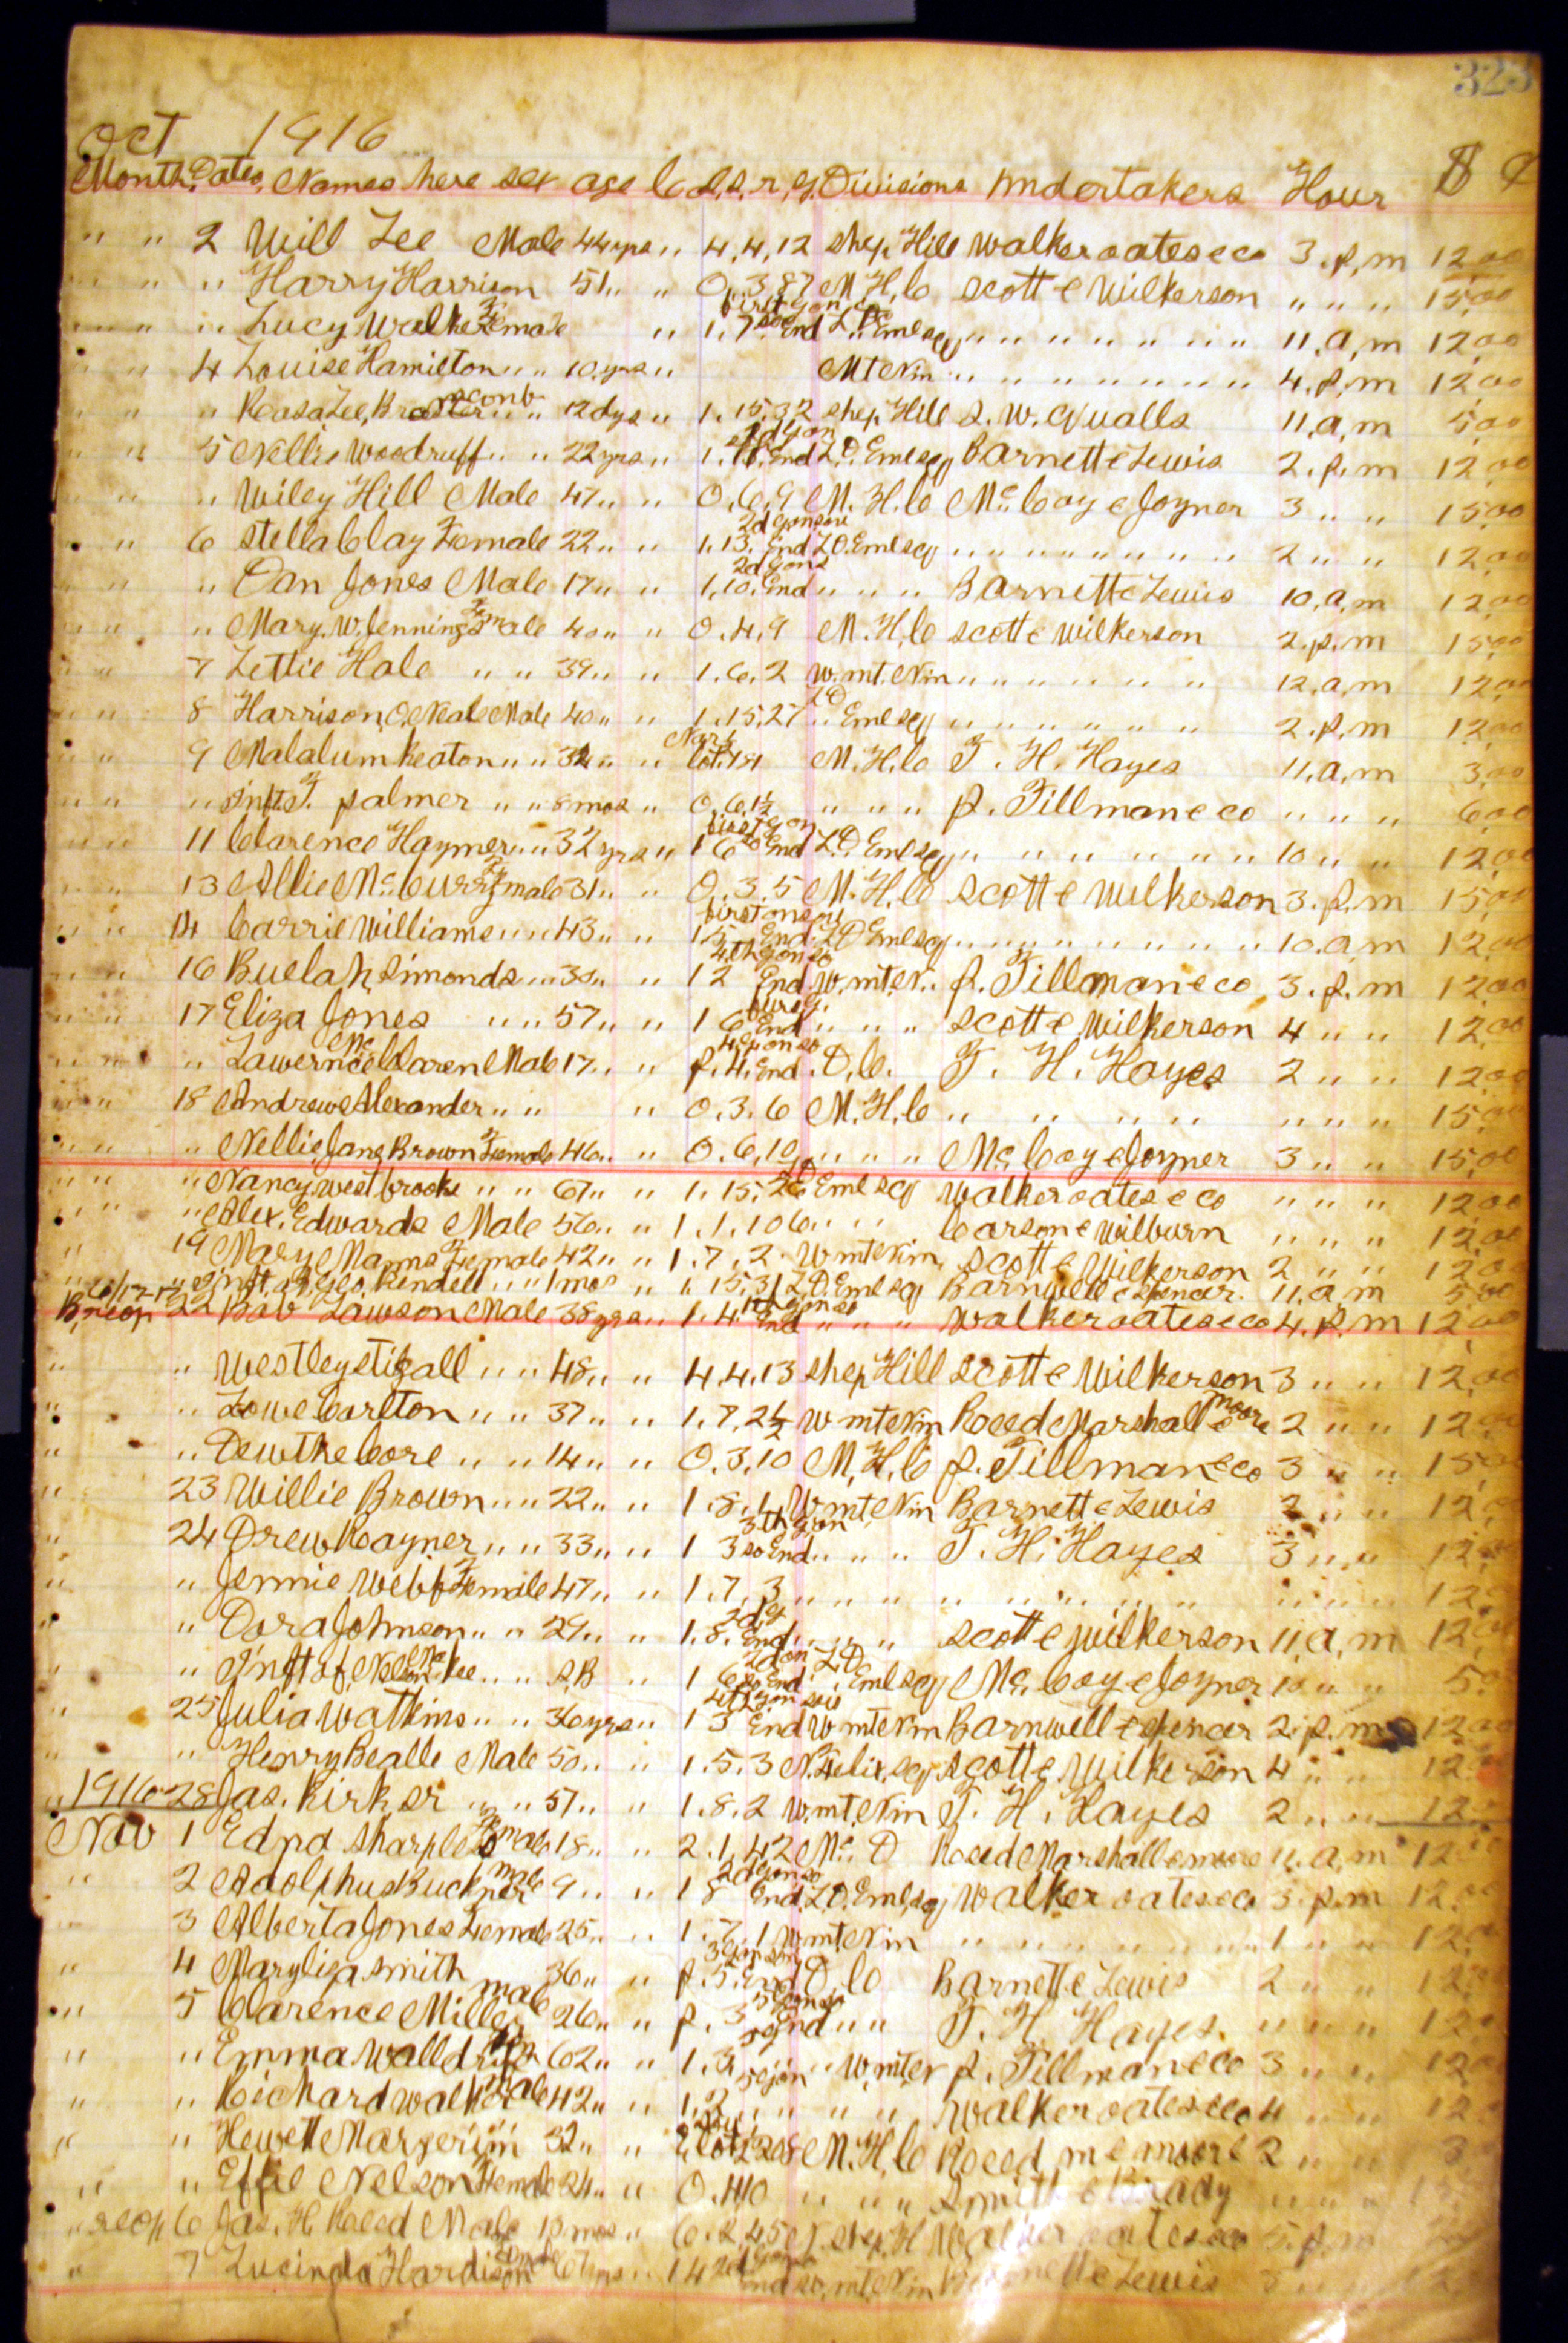 323
Oct 1916
Month. Dates, Names here sex age C S. S. r, g. Divisions undertakers Hour $ ¢
" " 2 Will Lee Male 44 yrs " 4, 4, 12 Shep. Hill Walker oates & co 3. p, m 12,00
" " " Harry Harrison 51 " " O, 3, 87 M. H. C Scott & Wilkerson " " " 15,00
" " " Lucy Walker Female " 1. 7 End L. D. Eml sq " " " " " 11, a, m 12,00
" " 4 Louise Hamilton " " 10 yrs " Mt Nin " " " " " 4. p, m 12,00
" " " Rosa Lee, " " 12 dys " 1. 15, 32 Shep. Hill S. W. Qualls 11, a, m 5,00
" " 5 Nellie Woodruff " " 22 yrs " 1. End L. D. Eml sq Barnett & Lewis 2. p. m 12,00
" " " Wiley Hill Male 47 " " O. 6, 9 M. H. C Mc. Coy & Joyner 3 " " 15,00
" " 6 Stella Clay Female 22 " " 1. 13. End L D. Eml sq " " " " " 2 " " 12,00
" " " Dan Jones Male 17 " " 1, 10. End " " " Barnett & Lewis 10, a, m 12,00
" " " Mary. W. Jennings Female 40 " " O. 4. 9 M. H, C Scott & Wilkerson 2. p. m 15,00
" " 7 Lettie Hale " " 39 " " 1. 6, 2 W. mt. Nin " " " " " 12, a, m 12,00
" " 8 Harrison O, Neal Male 40 " " 1. 15, 27 L D " Eml sq " " " " " 2. p, m 12,00
" " 9 Malalum Keaton " " " " lot M. H, C T. H. Hayes 11, a, m 3,00
" " " palmer " " 8 mos " O, 6, 1½ " " " P. Tillman & co " " " 6,00
" " 11 Clarence Haymer " " 32 yrs " 1 6 End L. D. Eml sq " " " " " 10 " " 12,00
" " 13 Allie Mc. Curry Female 31 " " O, 3. 5 M. H, C Scott & Wilkerson 3. p. m 15,00
" " 14 Carrie Williams " " 43 " " End. L D Eml sq " " " " " 10. a, m 12,00
" " 16 Buelah Simonds " " 30 " " 1 2 4th gon so End. W. mt N. P. Tillman & co 3. p. m 12,00
" " 17 Eliza Jones " " 57 " " 1 6 End " " " Scott & Wilkerson 4 " " 12,00
" " " Lawernce Mc Claren Male 17 " " P. 4. End. D, C. T. H. Hayes 2 " " 12,00
" " 18 Andrew Alexander " " " O. 3. 6 M. H, C " " " " " " " 15,00
" " " Nellie Jane Brown Female 46 " " O. 6, 10 " " " Mc. Coy & Joyner 3 " " 15,00
" " " Nancy Westbrooks " " 67 " " 1. 15, 26 L D Eml sq Walker oates & co " " " 12,00
" " " Alex. Edwards Male 56 " " 1. 1. 106 " " Carson & Wilburn " " " 12,00
" 19 Mary Manns Female 42 " " 1. 7, 2 W mt Nin, Scott & Wilkerson 2 " " 12,00
" Inft, of Geo, Kendell " " 1 mos " 1. 15, 31 L D. Eml sq Barnwell & Spencer. 11, a, m 5,00
22 Bob Lawson Male 38 yrs " 1. 4. End " " " Walker oates & co 4. p. m 12,00
" " Westley Stigall " " 48 " " 4. 4. 13 Shep Hill Scott & Wilkerson 3 " " 12,00
" " Lowe Carlton " " 37 " " 1. 7, 2½ W mt Nin Reed Marshall & moore 2 " " 12,00
" " Dewthe Core " " 14 " " O. 3, 10 M, H, C P. Tillman & co 3 " " 15,00
" 23 Willie Brown " " 22 " " 1. 8. 4 W mt Nin Barnett & Lewis 2 " " 12,
" 24 Drew Rayner " " 33 " " 1 3 so End " " " T. H. Hayes 3 " " 12,
" " Jennie Webb Female 47 " " 1. 7, 3 " " " " " " " " " 12
" " Dora Johnson " " 29 " " 1. 8. End " " " Scott & Wilkerson 11, a, m 12,
" " Inft of Nelson " " S, B " 1 6 End L D Eml sq Mc. Coy & Joyner 10 " " 5.
" 25 Julia Watkins " " 36 yrs " 1 3 End W mt Nin Barnwell & Spencer 2. p. m 12,00
" " Henry Bealle Male 50 " " 1. 5. 3 N. Felix, sq Scott & Wilkerson 4 " " 12
" 1916 28 Jas. Kirk Sr " " 57 " " 1. 8. 2 W. mt. Nin T. H. Hayes 2 " " 12
Nov 1 Edna Sharples Female 18 " " 2. 1. 42 Mc. D Reed Marshall & moore 11. a, m 12
" 2 Adolphus Buckner male 9 " " 1 8 2d gon so End. L D. Eml, sq Walker oates & co 3. p. m 12.
" 3 Alberta Jones Female 25 " " 1. 7. 1 W mt Nin " " " " " 1 " " 12
" 4 Mary Liza Smith 36 " " P. 5. End D. C Barnett & Lewis 2 " " 12
" 5 Clarence Miller male 26 " " P. 3 End " " T. H. Hayes. " " " 12
" " Emma 62 " " 1. 3 " W. mt N P. Tillman & co 3 " " 12
" " Richard Walker Male 42 " " 1. 2 " " " " Walker oates & co 4 " " 12
" " Hewett Margerim 32 " " lot M. H, C Reed m & moore 2 " " 3
" " Effie Nelson Female 24 " " O. " " " Smith & Brady " " "
" reop 6 Jas. H. Reed Male mos " Walker oates & co 5. p. m
" 7 Lucinda Hardison " 1 4 End W, mt Nin Barnett & Lewis